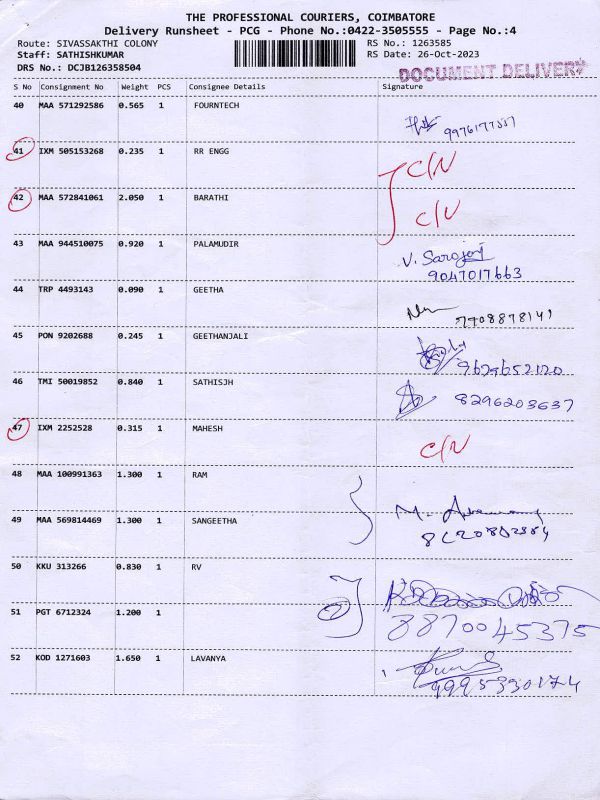 THE PROFESSIONAL COURIERS, COIMBATORE
Delivery Runsheet - PCG - Phone No.:0422-3505555 - Page No.:4
Route: SIVASSAKTHI COLONY RS No.: 1263585
Staff: SATHISHKUMAR RS Date: 26-Oct-2023
DRS No.: DCJB126358504 DOCUMENT DELIVERY
S No Consignment No Weight PCS Consignee Details Signature
40 MAA 571292586 0.565 1 FOURNTECH
41 IXM 505153268 0.235 1 RR ENGG C/N
42 MAA 572841061 2.050 1 BARATHI C/N
43 MAA 944510075 0.920 1 PALAMUDIR V. Sarojani
9047017663
44 TRP 4493143 0.090 1 GEETHA
7708878141
45 PON 9202688 0.245 1 GEETHANJALI
9629652120
46 TMI 50019852 0.840 1 SATHISJH 8296203637
47 IXM 2252528 0.315 1 MAHESH C/N
48 MAA 100991363 1.300 1 RAM
49 MAA 569814469 1.300 1 SANGEETHA M.
50 KKU 313266 0.830 1 RV
51 PGT 6712324 1.200 1 8870045375
52 KOD 1271603 1.650 1 LAVANYA
9995330174